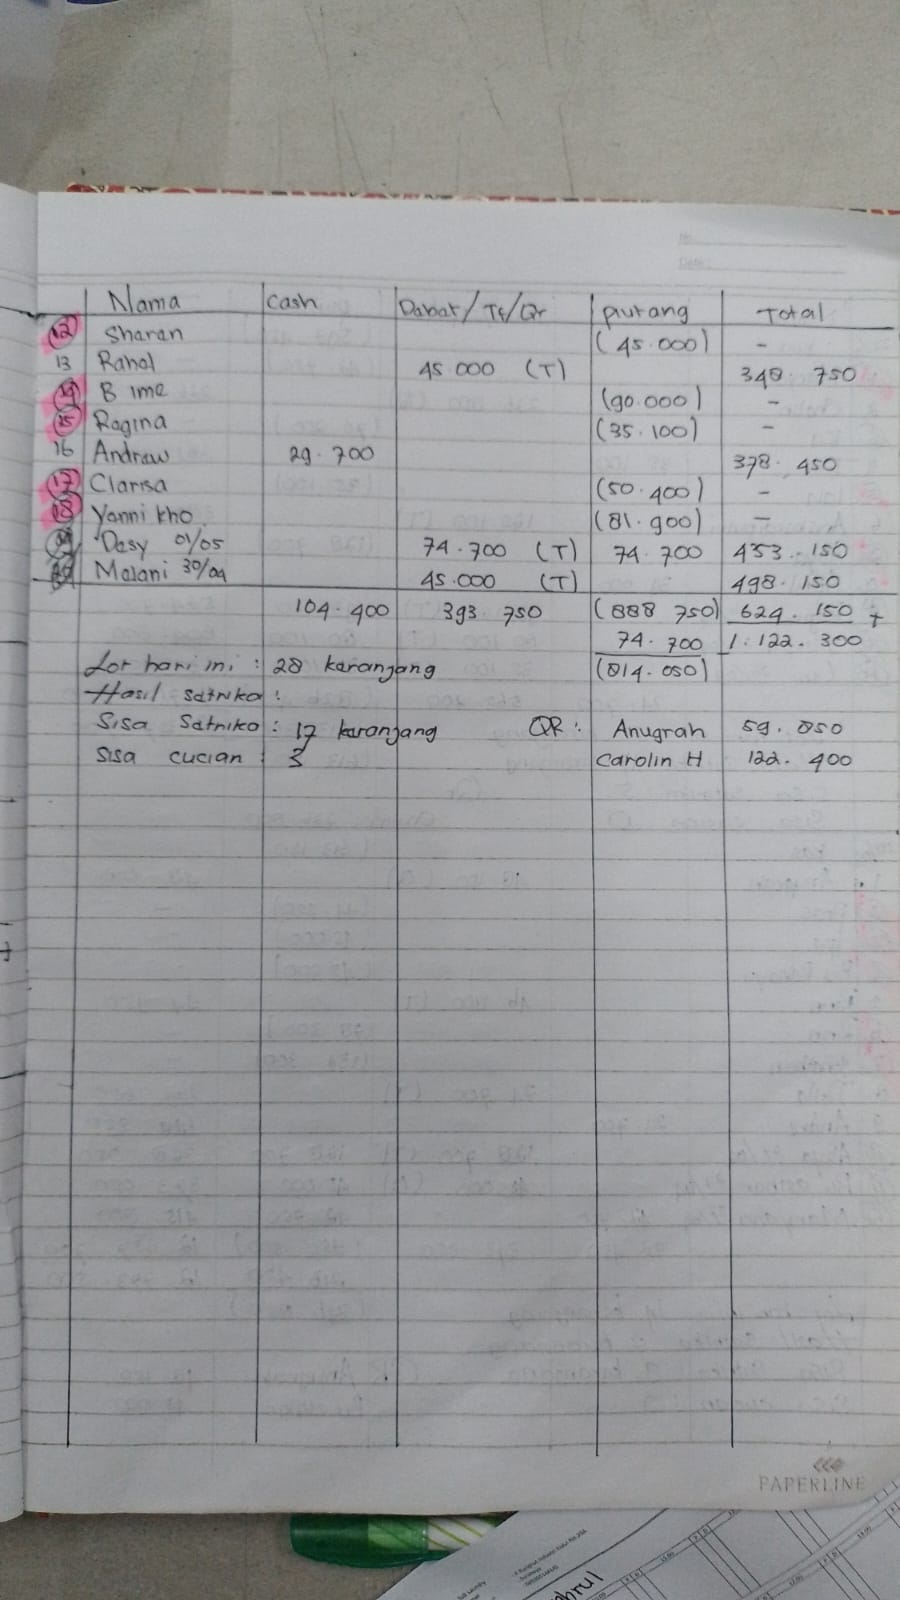 Nama Cash Dabat/Tf/Qr piutang Total
12 Sharan (45.000) -
13 Rahal 45.000 (T) 348.750
14 B ime (90.000) -
15 Ragina (35.100) -
16 Andraw 29.700 378.450
17 Clarisa (50.400) -
18 Yanni kho (81.900) -
Dasy 01/05 74.700 (T) 74.700 453.150
Malani 30/04 45.000 (T) 498.150
104.400 393.750 (888.750) 624.150 +
74.700 1.122.300
Lor hari ini : 28 karanjang (814.050)
Hasil satrika :
Sisa Satrika : 17 karanjang QR : Anugrah 59.850
Sisa cucian : 3 Carolin H 122.400
PAPERLINE